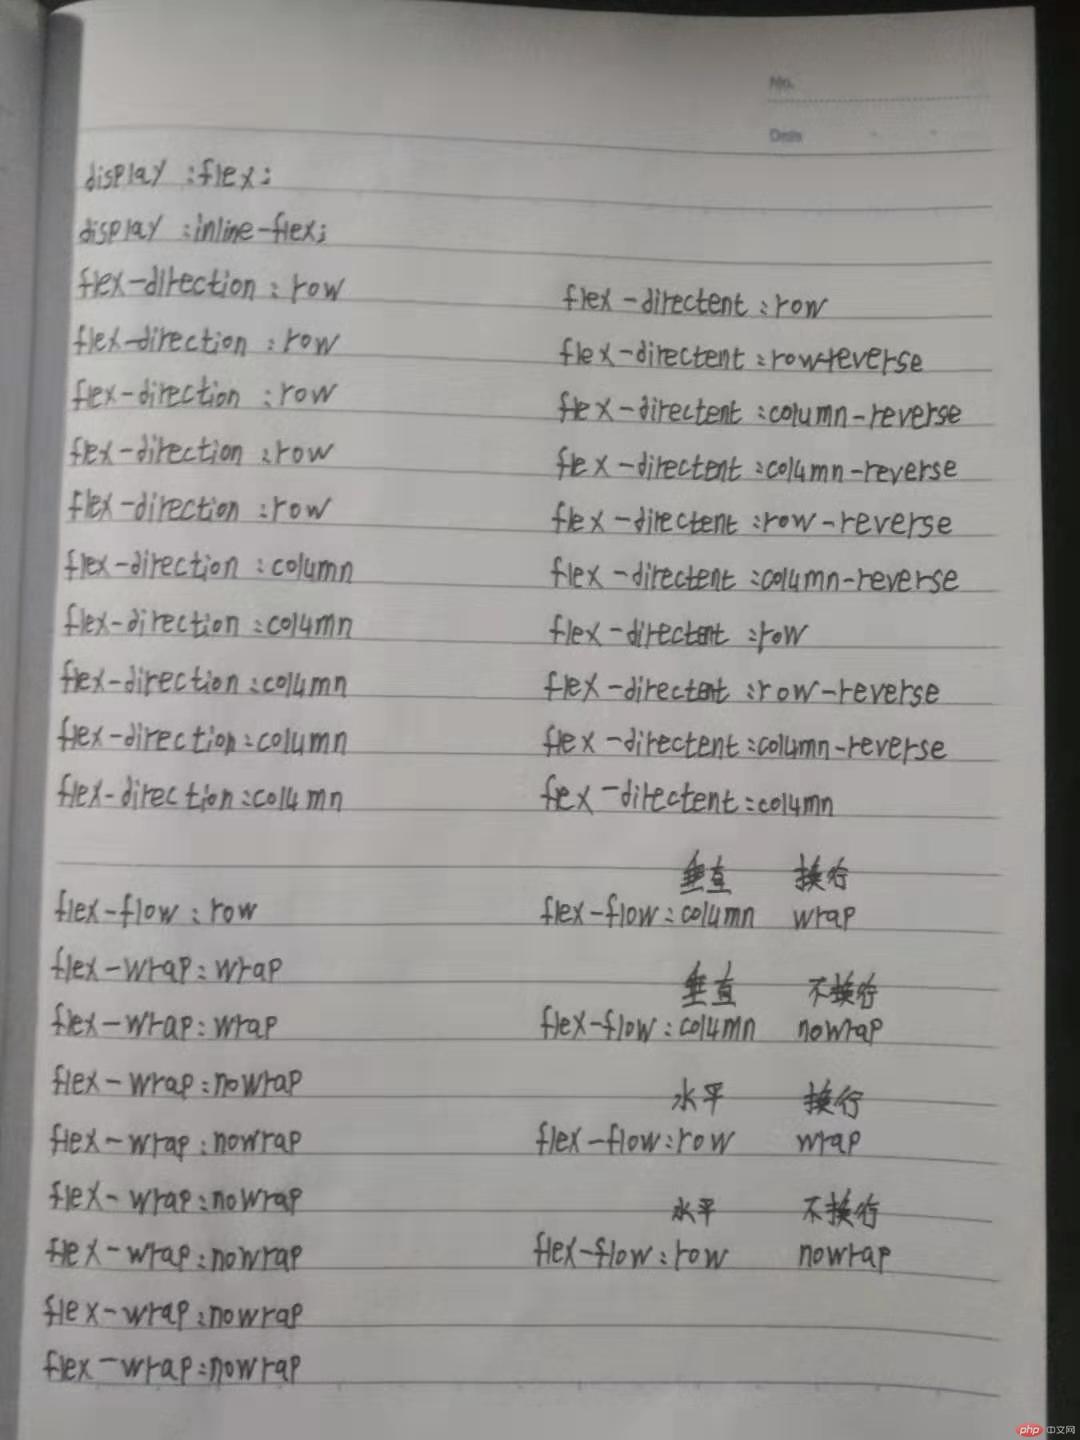 No.
Date
display :flex;
display :inline-flex;
flex-direction : row
flex-direction : row
flex-direction : row
flex-direction : row
flex-direction : row
flex-direction : column
flex-direction : column
flex-direction : column
flex-direction : column
flex-direction : column
flex-flow : row
flex-wrap : wrap
flex-wrap : wrap
flex-wrap : nowrap
flex-wrap : nowrap
flex-wrap : nowrap
flex-wrap : nowrap
flex-wrap : nowrap
flex-wrap : nowrap
flex-directent : row
flex-directent : row-reverse
flex-directent : column-reverse
flex-directent : column-reverse
flex-directent : row-reverse
flex-directent : column-reverse
flex-directent : row
flex-directent : row-reverse
flex-directent : column-reverse
flex-directent : column
垂直 换行
flex-flow : column wrap
垂直 不换行
flex-flow : column nowrap
水平 换行
flex-flow : row wrap
水平 不换行
flex-flow : row nowrap
php 中文网